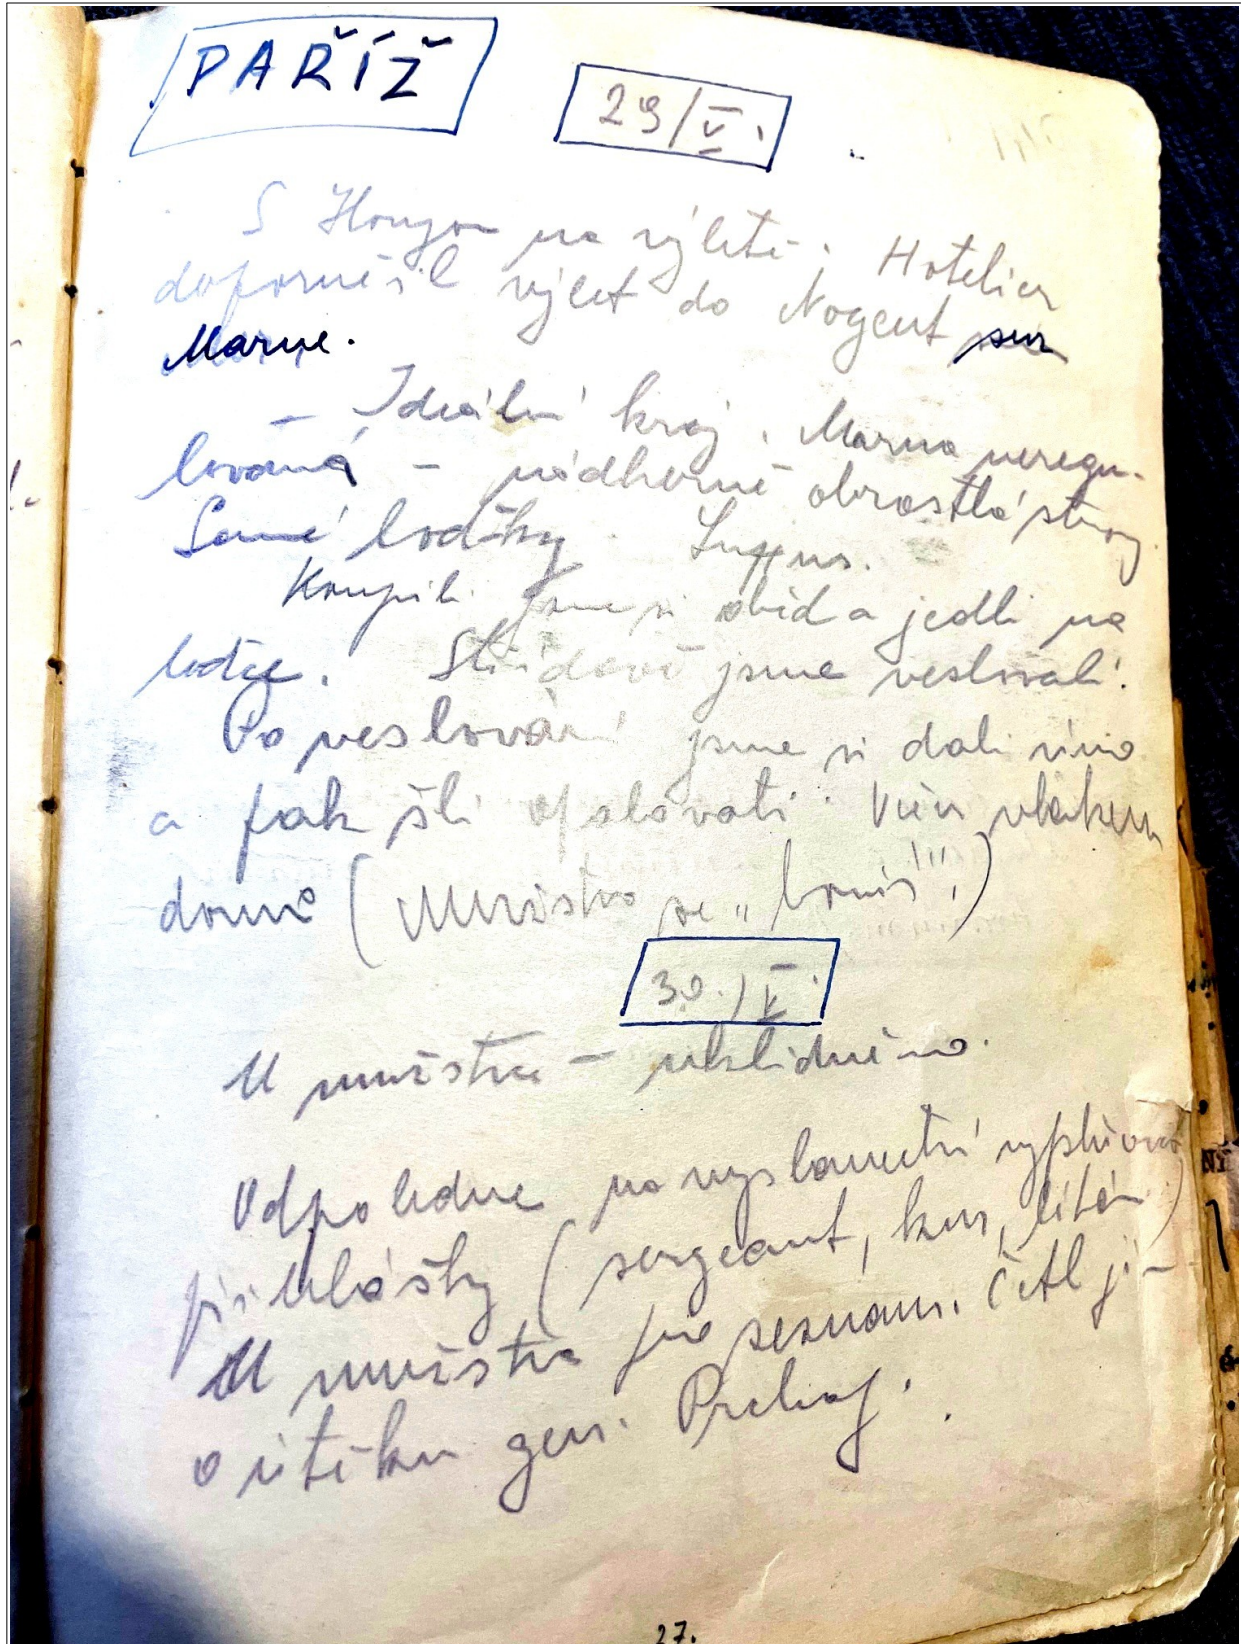 PAŘÍŽ
29/V.
S na výletě; Hotelier
doporučil výlet do Nogent sur
Marne.
- Ideální kraj. Marna neregu-
lovaná - nádherně obrostlá stromy
Samé loďky. Luxus.
Koupili jsme si oběd a jedli na
loďce. Střídavě jsme veslovali.
Po veslování jsme si dali víno
a pak šli opalovati. Večer vlakem
domů (Mužstvo se „bouří"!)
30./V.
U mužstva - uklidněno.
Odpoledne na vyslanectví
přihlášky (sergeant,
U mužstva pro seznam. Četl ji-
o útěku gen. Prchal.
27.